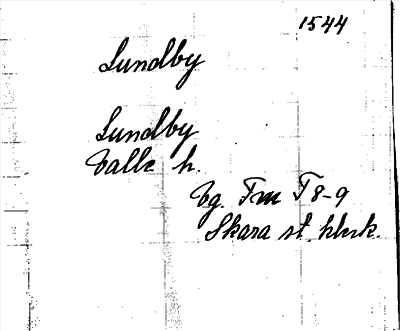 1544
Lundby
Lundby
Valle h.
Vg. Fm F 8-9
Skara st. klerk.